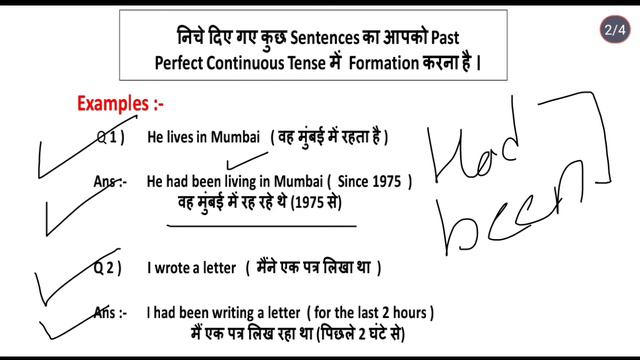 निचे दिए गए कुछ Sentences का आपको Past
2/4
Perfect Continuous Tense में Formation करना है |
Examples :-
Q 1 ) He lives in Mumbai ( वह मुंबई में रहता है )
Had
Ans :- He had been living in Mumbai ( Since 1975 )
वह मुंबई में रह रहे थे (1975 से)
been
Q 2 ) I wrote a letter ( मैंने एक पत्र लिखा था )
Ans :- I had been writing a letter ( for the last 2 hours )
मैं एक पत्र लिख रहा था (पिछले 2 घंटे से)